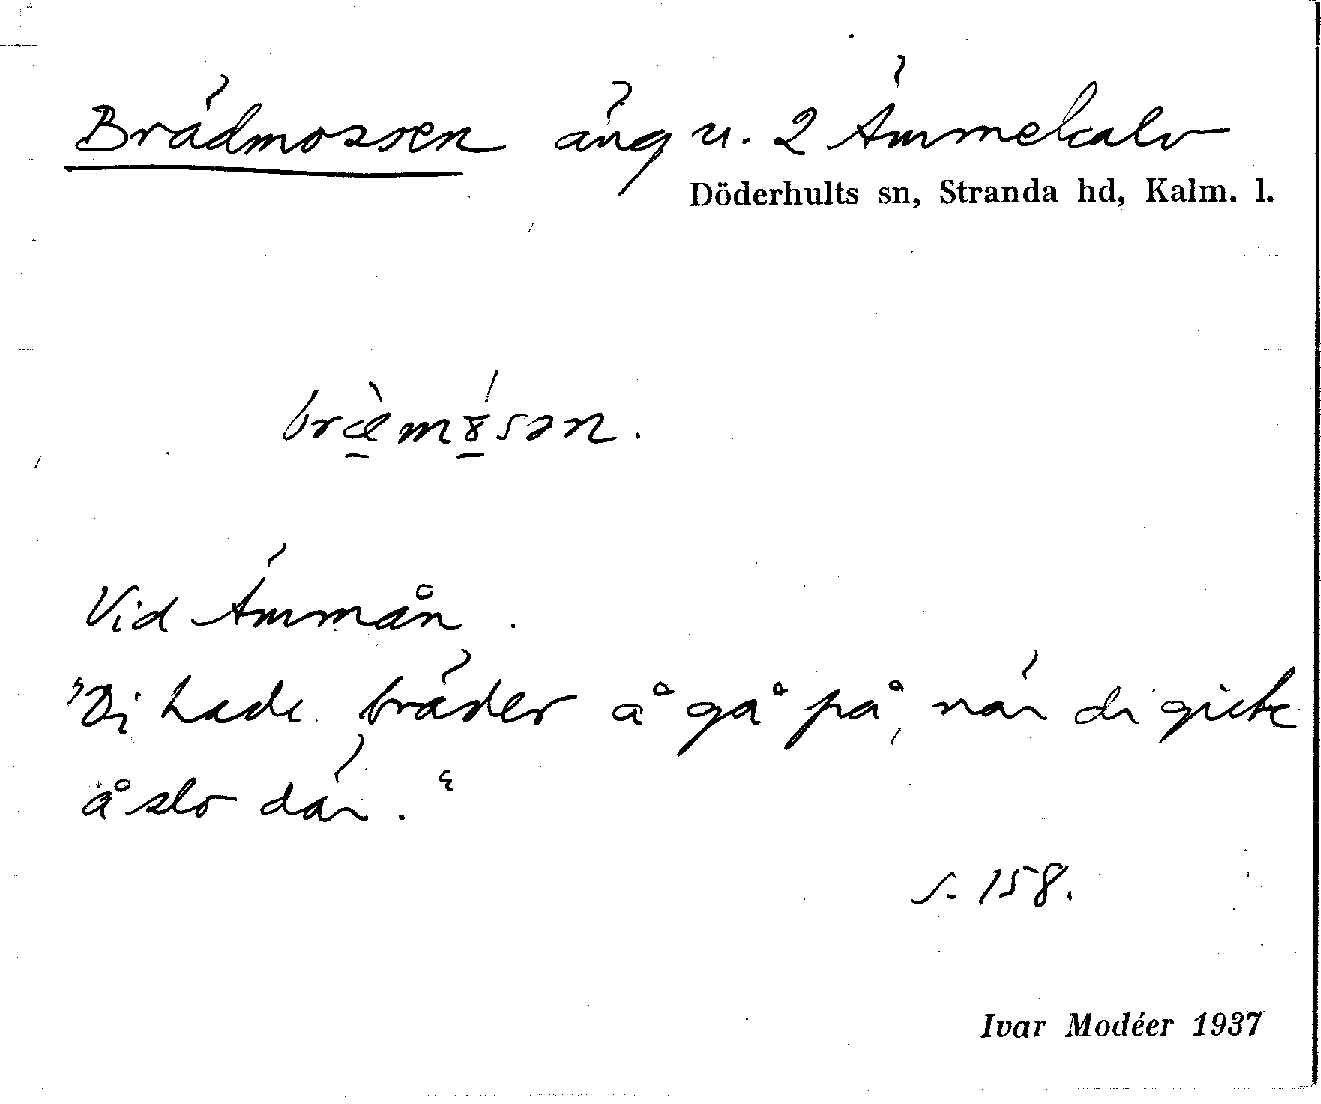 Brädmossen äng u. 2 Ämmekalv
Döderhults sn, Stranda hd, Kalm. l.
bræ̀mɤ́sən.
Vid Ämmån.
"Di hade bräder å gå på, när di gick
å slo där."
s. 158.
Ivar Modéer 1937